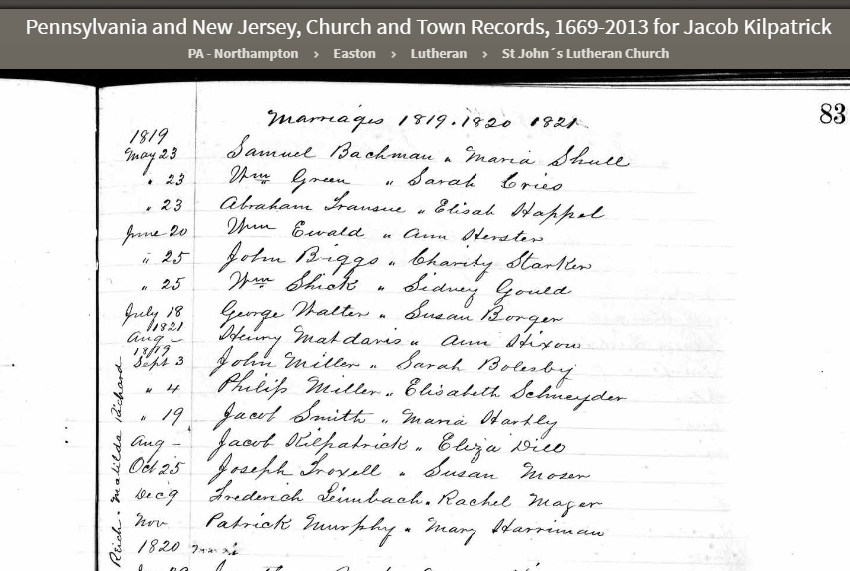 Pennsylvania and New Jersey, Church and Town Records, 1669-2013 for Jacob Kilpatrick
PA - Northampton › Easton › Lutheran › St John´s Lutheran Church
83
Marriages 1819. 1820 1821
1819
May 23 Samuel Bachman " Maria Shull
" 23 Wm Green " Sarah Cries
" 23 Abraham Transue " Elisah Happel
June 20 Wm Ewald " Ann Herster
" 25 John Briggs " Charity Starker
" 25 Wm Shick " Sidney Gould
July 18 George Walter " Susan Borger
1821
Aug - Henry Matdavis " Ann Hixon
1819
Sept 3 John Miller " Sarah Bolesby
" 4 Philip Miller " Elisabeth Schneyder
" 19 Jacob Smith " Maria Hartly
Aug - Jacob Kilpatrick " Eliza Dill
Oct 25 Joseph Troxell " Susan Moser
Dec 9 Frederich Leimbach " Rachel Mager
Nov Patrick Murphy " Mary Harriman
1820
Reich " Matilda Richard